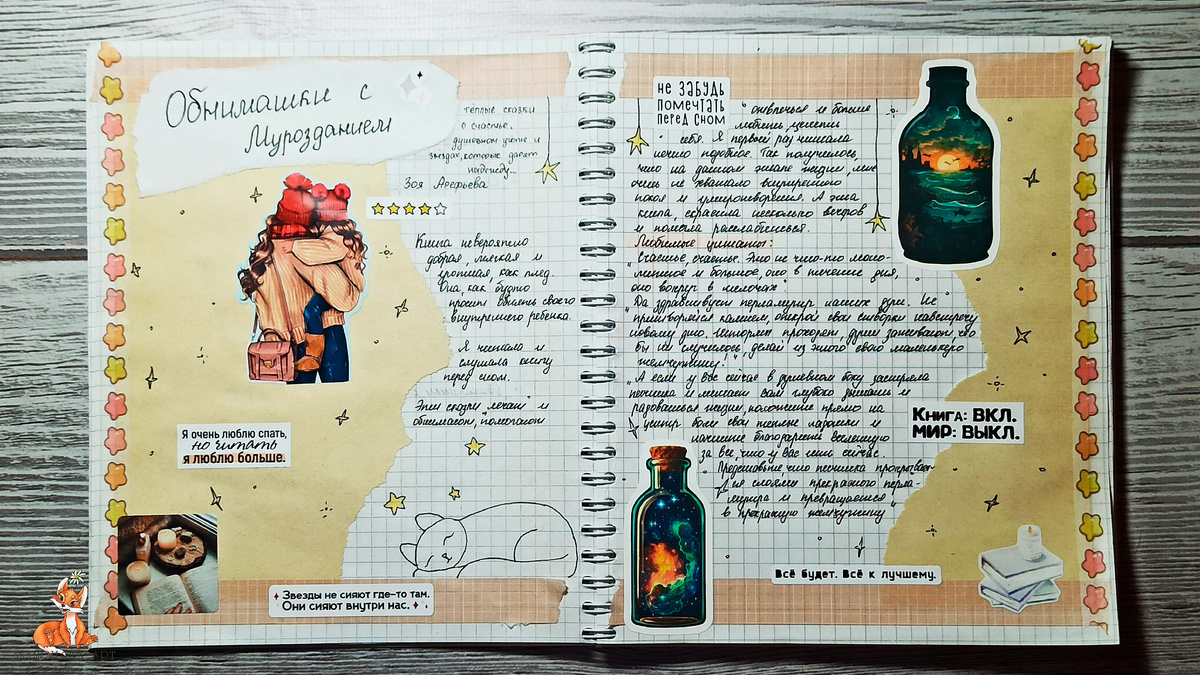 Обнимашки с
Мурозданием
тёплые сказки
о счастье,
душевном уюте и
звёздах, которые дарят
надежду...
Зоя Арефьева
Книга невероятно
добрая, мягкая и
уютная, как плед.
Она, как будто
просит обнять своего
внутреннего ребенка.
Я читала и
слушала книгу
перед сном.
Эти сказки "лечат" и
обнимают, помогают
Я очень люблю спать,
но читать
я люблю больше.
Звезды не сияют где-то там.
Они сияют внутри нас.
не забудь
помечтать
перед сном
отвлечься и больше
любить, ценить
себя. Я первый раз читала
нечто подобное. Так получилось,
что на данном этапе жизни, мне
очень не хватало внутреннего
покоя и умиротворения. А эта
книга, скрасила несколько вечеров
и помогла расслабиться.
Любимые цитаты:
"Счастье, счастье. Это не что-то моно-
литное и большое, оно в течение дня,
оно вокруг в мелочах"
"Да здравствует перламутр наших душ. Не
притворяйся камнем, открой свои створки навстречу
новому дню. Шторма проходят, души заживают, что
бы ни случилось, делай из этого свою маленькую
жемчужину!"
"А если у вас сейчас в душевном боку застряла
песчинка и мешает вам глубоко дышать и
радоваться жизни, положите прямо на
центр боли свои теплые ладошки и
начните благодарить вселенную
за все, что у вас есть сейчас.
Представьте что песчинка прорастает-
ся слоями прекрасного перла-
мутра и превращается
в прекрасную жемчужину"
Книга: ВКЛ.
МИР: ВЫКЛ.
Всё будет. Всё к лучшему.